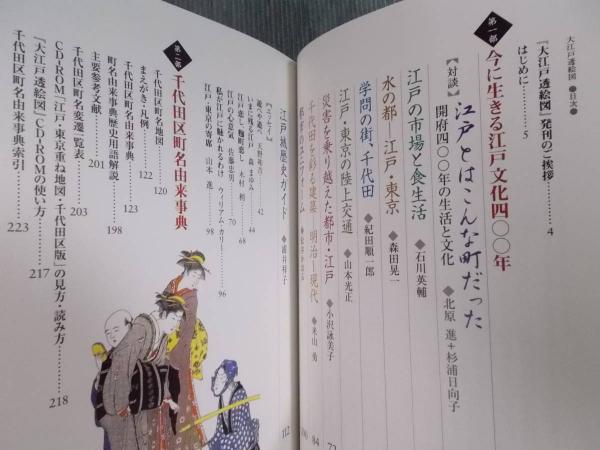 大江戸透絵図 ●目次●
『大江戸透絵図』発刊のご挨拶…………4
はじめに…………5
第一部 今に生きる江戸文化四〇〇年
【対談】江戸とはこんな町だった
開府四〇〇年の生活と文化 ◆北原 進+杉浦日向子
江戸の市場と食生活 ◆石川英輔
水の都 江戸・東京 ◆森田晃一
学問の街、千代田 ◆紀田順一郎
江戸・東京の陸上交通 ◆山本光正
災害を乗り越えた都市・江戸 ◆小沢詠美子 72
千代田を彩る建築 明治─現代 ◆米山 勇 84
江戸城歴史ガイド ◆浦井祥子 112
【エッセイ】
遊べや遊べ 天野祐吉 42
いまに残る江戸 森 まゆみ
江戸恋し 麹町恋し 木村 梢
江戸の心意気 佐藤忠男 70
私が江戸に魅かれるわけ ウィリアム カリー 96
江戸・東京の寄席 山本 進 98
第二部 千代田区町名由来事典
千代田区町名地図 120
まえがき・凡例 122
千代田区町名由来事典 123
町名由来事典歴史用語解説 198
主要参考文献 201
千代田区町名変遷一覧表 203
CD-ROM「江戸・東京重ね地図・千代田区版」の見方・読み方…………218
『大江戸透絵図』CD-ROMの使い方…………217
千代田区町名由来事典索引…………223